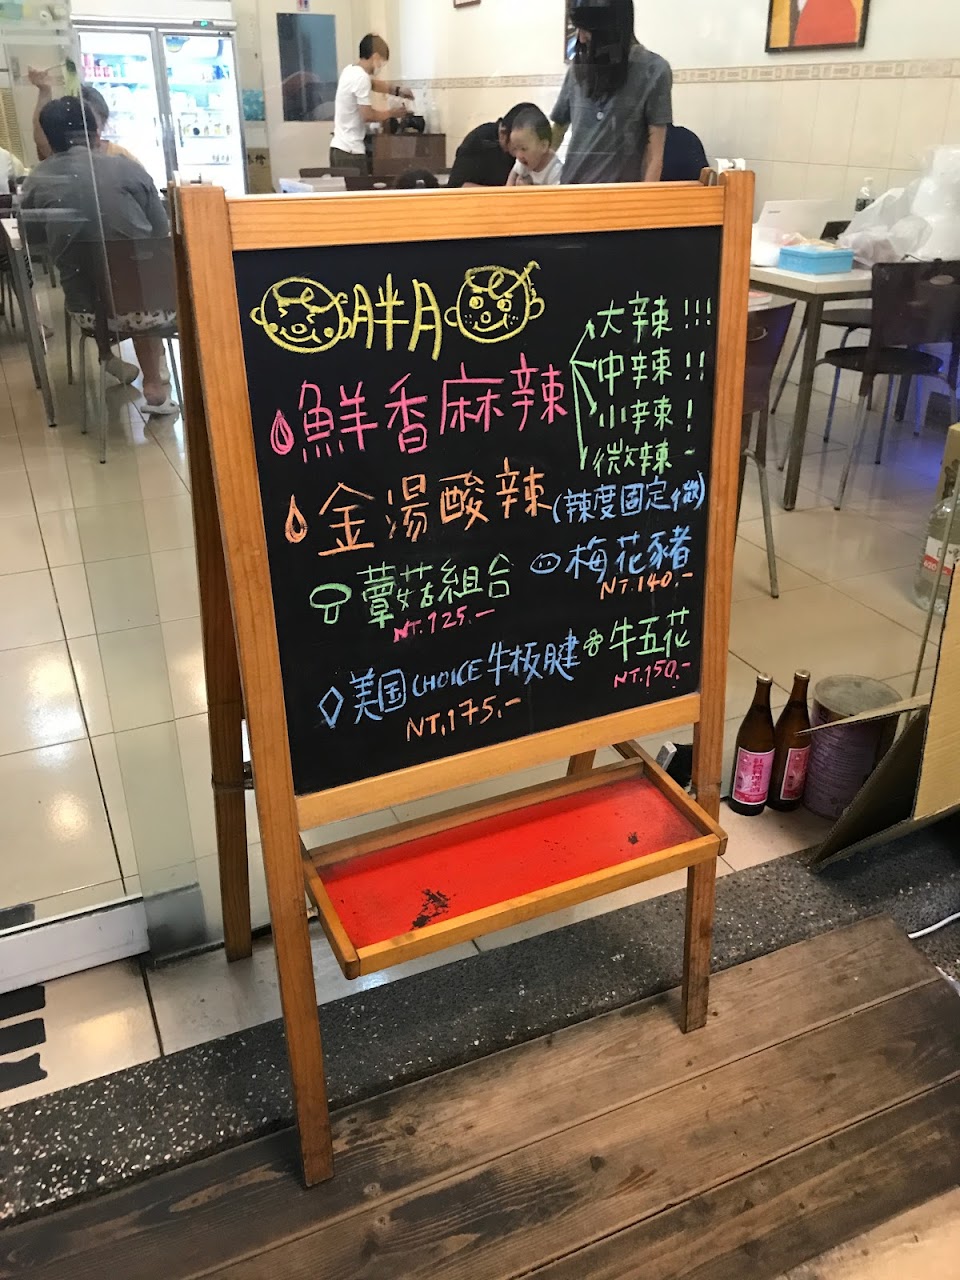 胖月
鮮香麻辣
大辣!!!
中辣!!
小辣!
微辣~
金湯酸辣(辣度固定微)
蕈菇組合
NT.125.-
梅花豬
NT.140.-
美国CHOICE牛板腱
NT.175.-
牛五花
NT.150.-